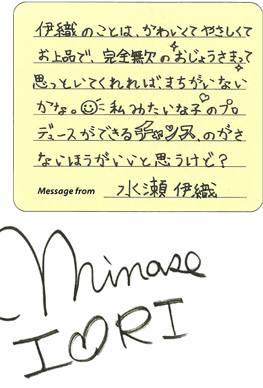 伊織のことは、かわいくてやさしくて
お上品で、完全無欠のおじょうさまって
思っといてくれれば、まちがいない
かな。私みたいな子のプロ
デュースができるチャンス、のがさ
ないほうがいいと思うけど?
Message from 水瀬 伊織
Minase
I♡RI